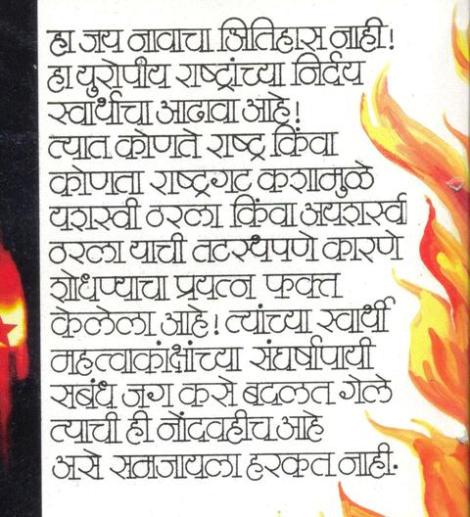 हा जय नावाचा अितिहास नाही!
हा युरोपीय राष्ट्रांच्या निर्दय
स्वार्थाचा आढावा आहे!
त्यात कोणते राष्ट्र किंवा
कोणता राष्ट्रगट कशामुळे
यशस्वी ठरला किंवा अयशस्वी
ठरला याची तटस्थपणे कारणे
शोधण्याचा प्रयत्न फक्त
केलेला आहे! त्यांच्या स्वार्थी
महत्वाकांक्षांच्या संघर्षापायी
सबंध जग कसे बदलत गेले
त्याची ही नोंदवहीच आहे
असे समजायला हरकत नाही.